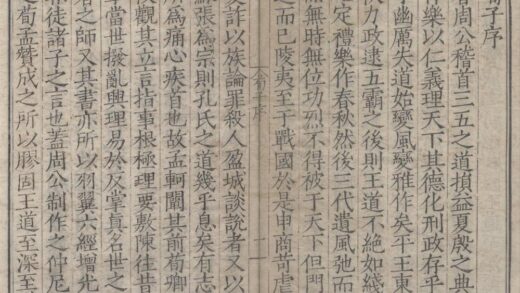 荀子序
昔周公稽首三五之道損益夏殷之典
樂以仁義理天下其德化刑政存乎
幽厲失道始變風變雅作矣平王東
力政逮五霸之後則王道不絕如綫
定禮樂作春秋然後三代遺風弛而
無時無位功烈不得被于天下但門
之而已陵夷至于戰國於是申商苛虐
荀序
變詐以族論罪殺人盈城談說者又以
蘇張爲宗則孔氏之道幾乎息矣有志
所爲痛心疾首也故孟軻闡其前荀卿
觀其立言指事根極理要敷陳往古
當世撥亂興理易於反掌真名世之
者之師又其書亦所以羽翼六經增光
徒諸子之言也蓋周公制作之仲尼
之荀孟贊成之所以膠固王道至深至